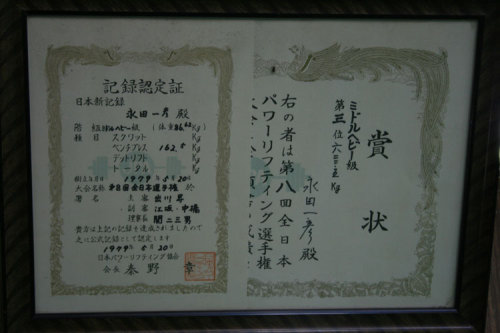 記録認定証
日本新記録
永田一彦 殿
階級 ミドルヘビー級 (体重86.62Kg)
種目 スクワット Kg
ベンチプレス 162.5 Kg
デッドリフト Kg
トータル Kg
樹立年月日 1979年5月20日
大会名称 第8回全日本選手権 於
署名 主審
副審 江坂・中橋
理事長 関二三男
貴方は上記の記録を達成されましたので
之に公式記録として認定します
1979年5月20日
日本パワーリフティング協会
会長 秦野 章
賞状
ミドルヘビー級
第三位 Kg
永田一彦 殿
右の者は第八回全日本
パワーリフティング選手権